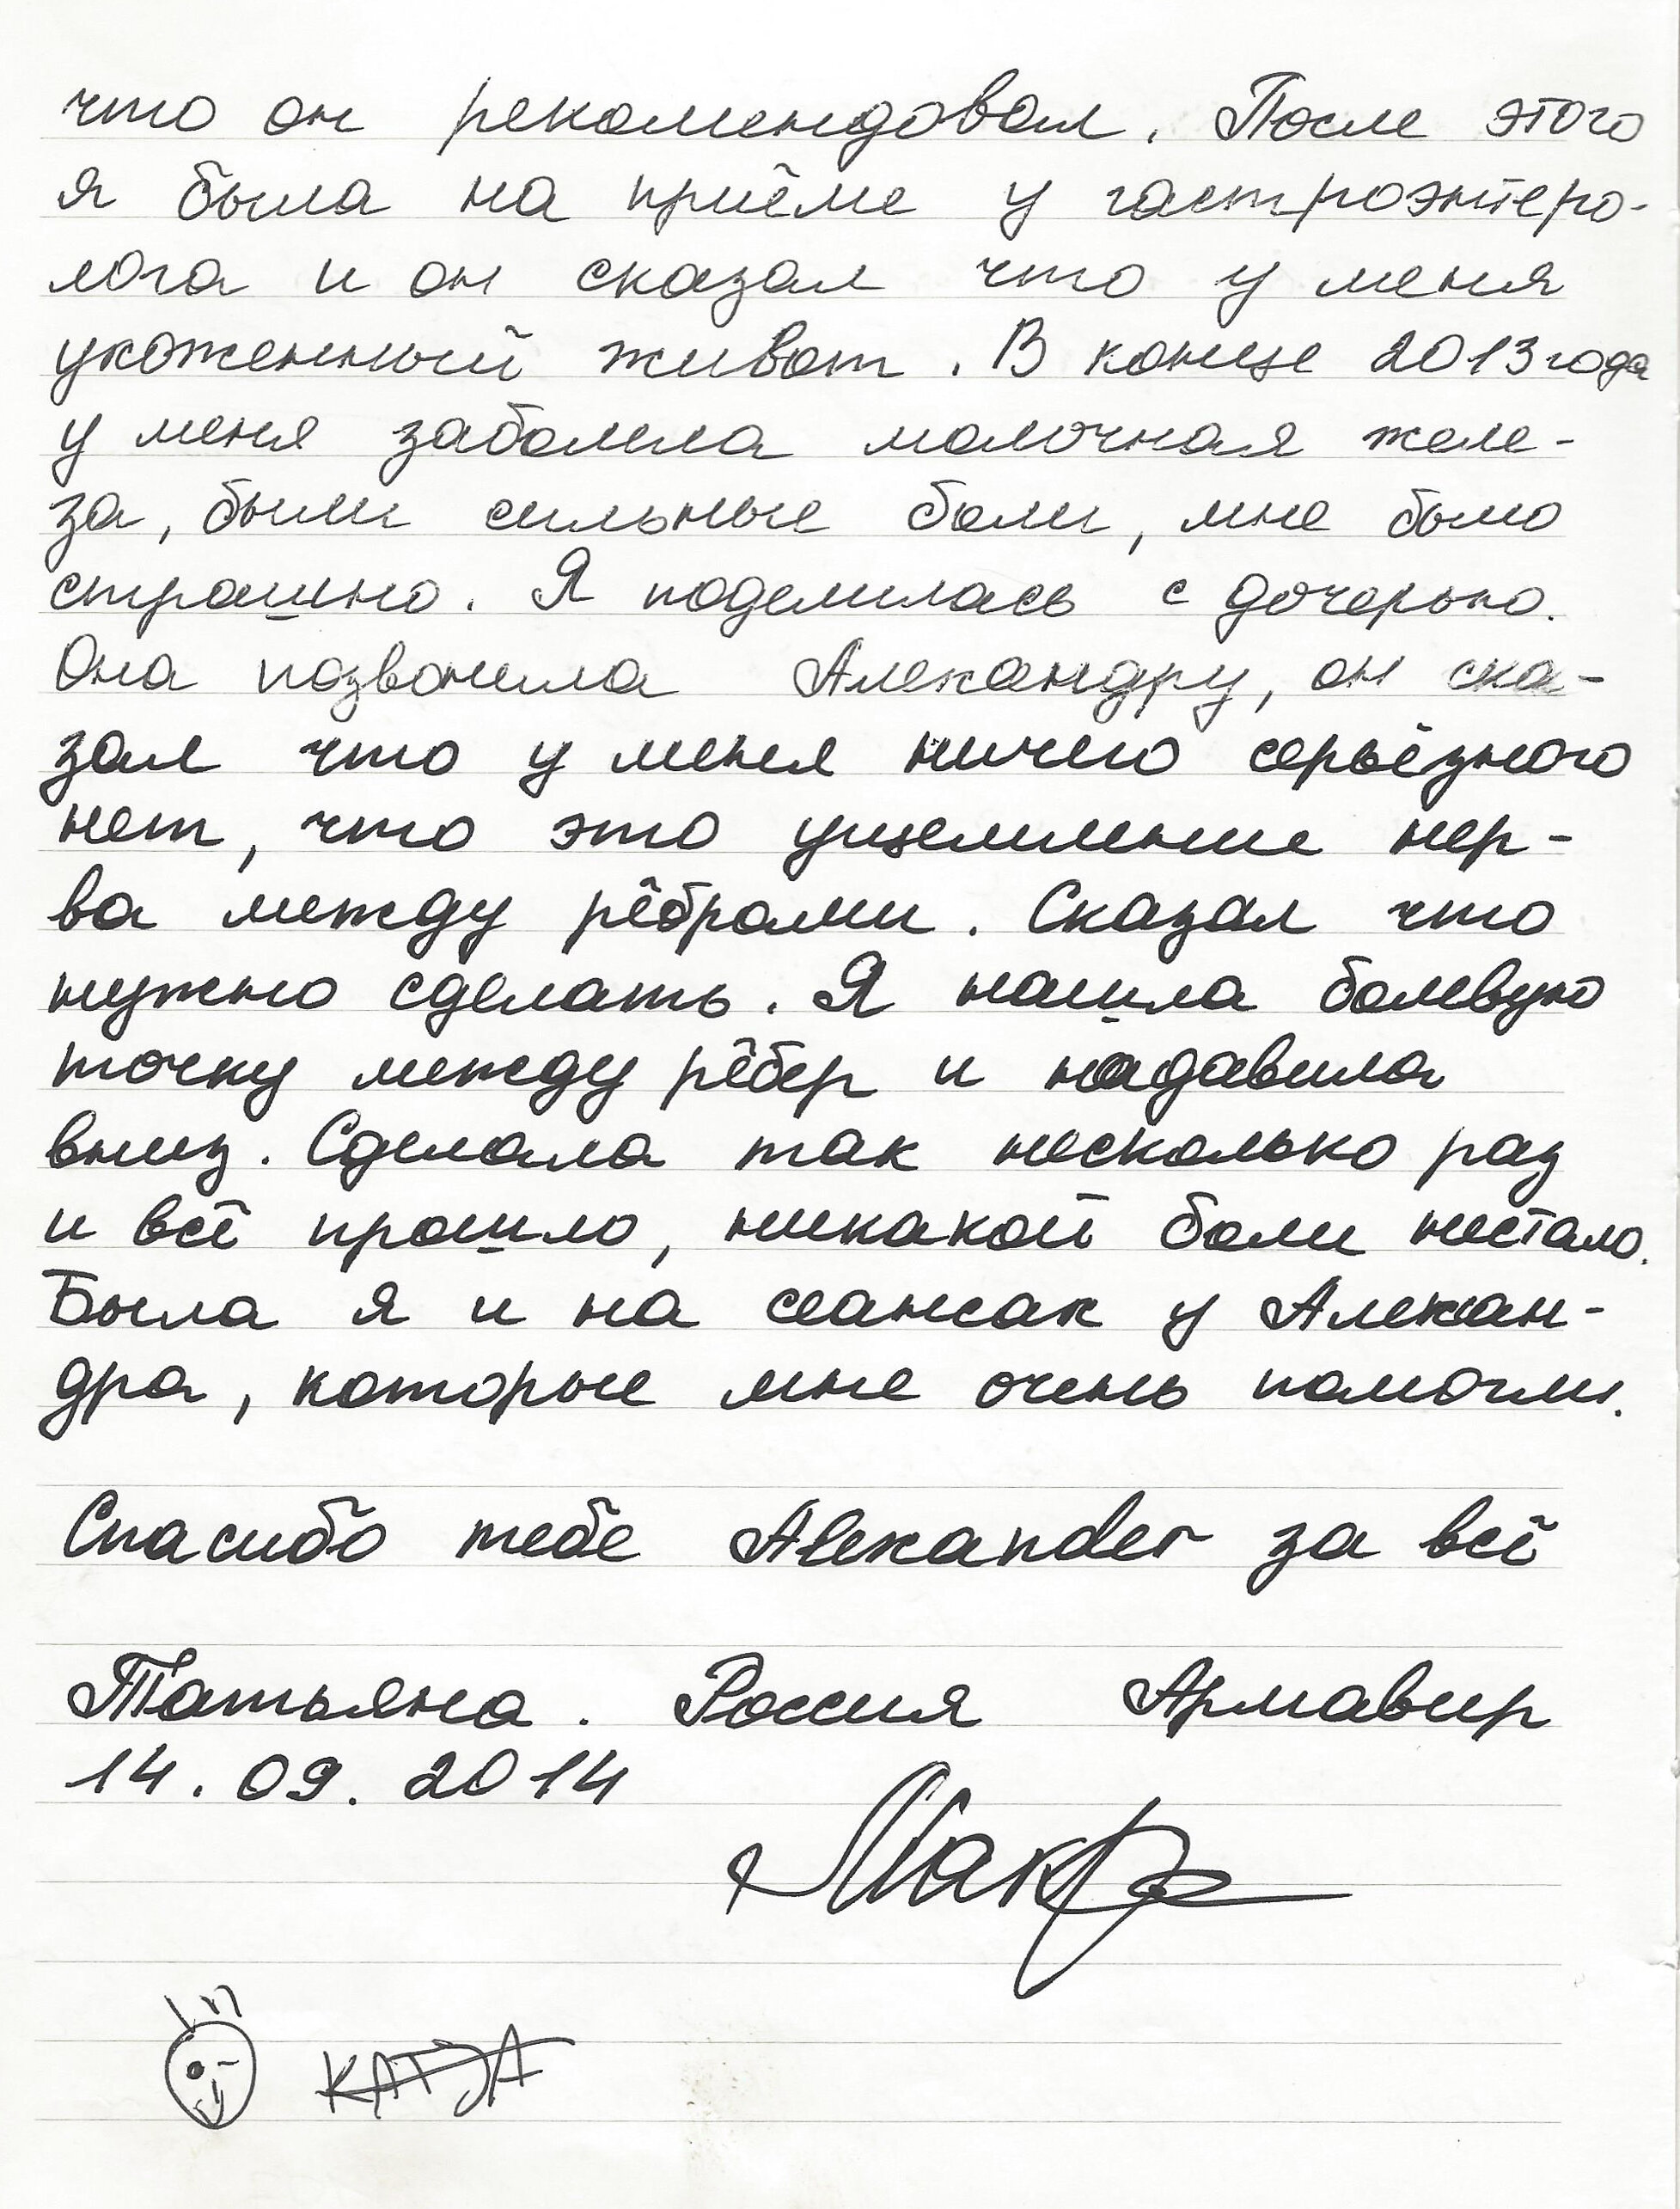 что он рекомендовал. После этого
я была на приёме у гастроэнтеро-
лога и он сказал что у меня
ухоженный живот. В конце 2013 года
у меня заболела молочная желе-
за, были сильные боли, мне было
страшно. Я поделилась с дочерью.
Она позвонила Александру, он ска-
зал что у меня ничего серьёзного
нет, что это ущемление нер-
ва между рёбрами. Сказал что
нужно сделать. Я нашла болевую
точку между рёбер и надавила
вниз. Сделала так несколько раз
и всё прошло, никакой боли нестало.
Была я и на сеансах у Алексан-
дра, которые мне очень помогли.
Спасибо тебе Alexander за всё
Татьяна. Россия Армавир
14.09.2014
KATJA